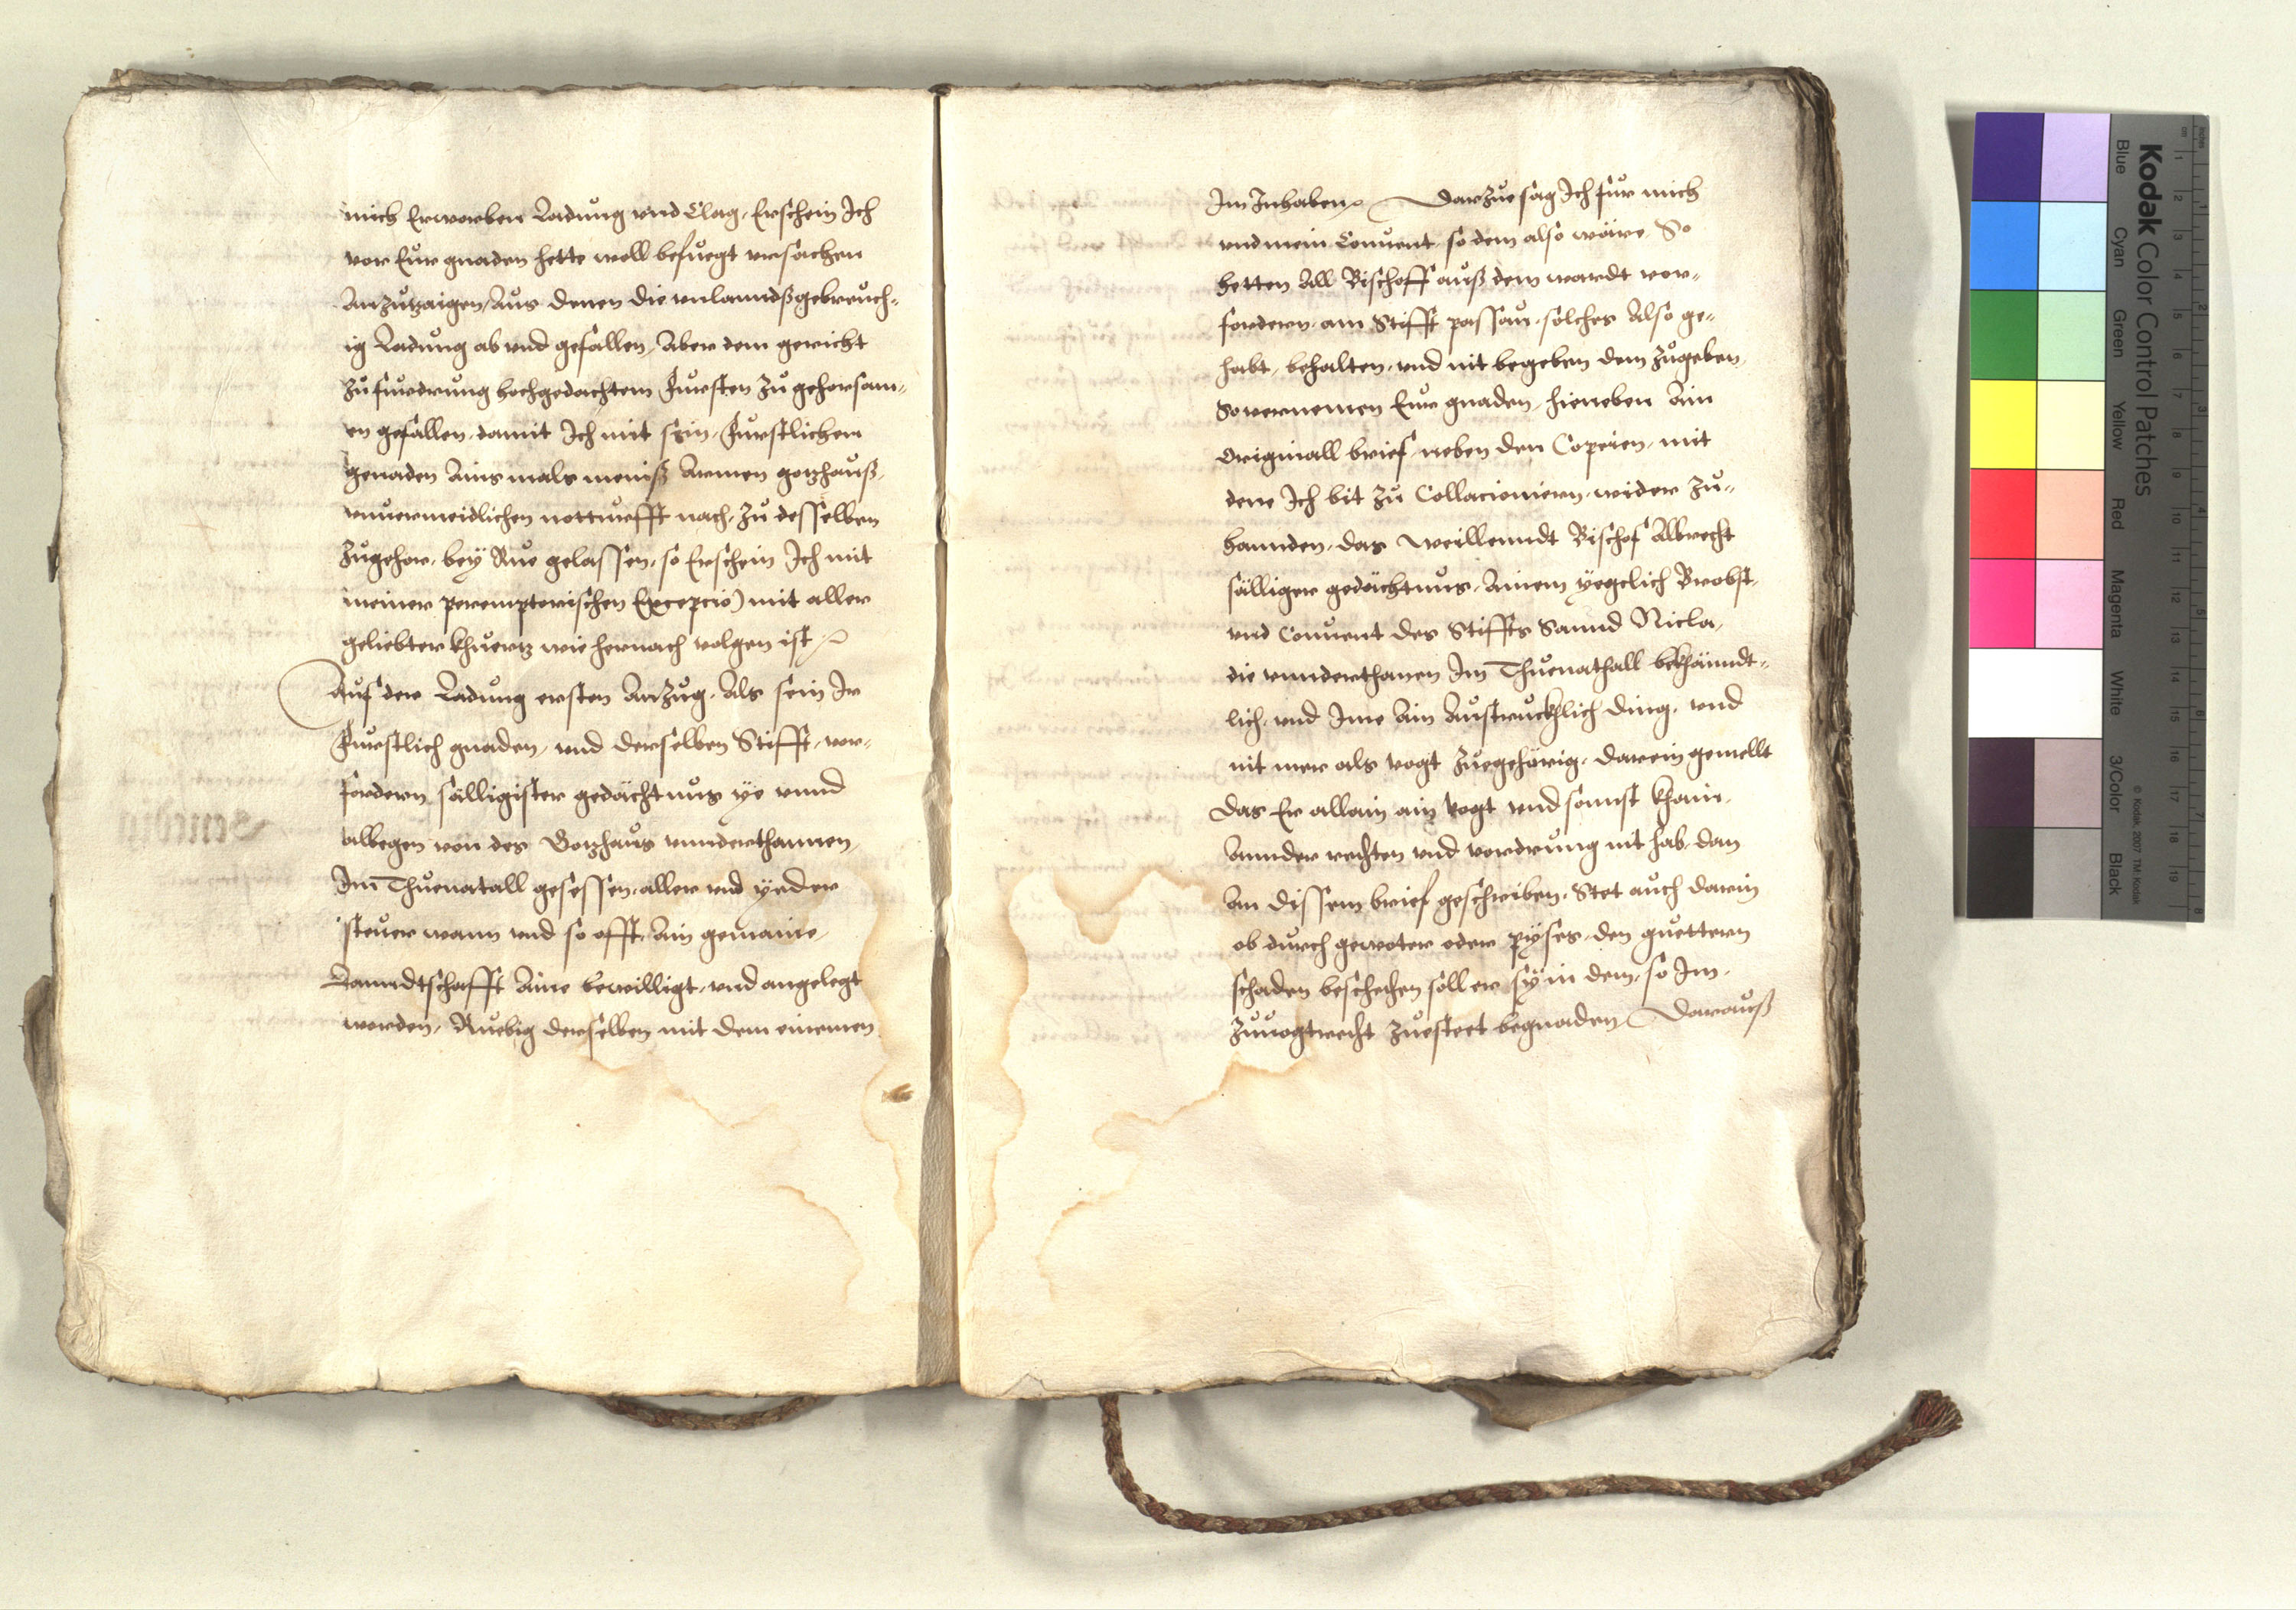 mich Erworben Ladung vnd Clag, Erschein Ich
vor Eur gnaden hette woll befuegt vrsachen
Anzuzaigen, Aus denen die vnlanndßgebreuch-
ig Ladung ab vnd gefallen, Aber dem gericht
zu furdrung hochgedachtem Fursten zu gehorsam-
en gefallen, damit Ich mit sein Furstlichen
genaden Ains mals meniß Armen gotzhauß,
vnuermeidlichen notturfft nach, zu desselben
zugehor, bey Rue gelassen, so Erschein Ich mit
meiner peremptorischen Excepcio) mit aller
geliebter khuertz wie hernach volgen ist
Auf der Ladung ersten Anzug, Als sein Ir
Furstlich gnaden, vnd derselben Stifft, vor-
fordern sälligister gedächtnus ye vnnd
albegen von des Gotzhaus vnnderthannen,
Im Thuenatall gesessen, aller vnd yeder
steuer wann vnd so offt, Ain gemaine,
Lanndtschafft Aine bewilligt, vnd angelegt
worden, Ruebig derselben mit dem einemen
Im Inhaben, Darzue sag Ich fur mich
vnd mein Conuent, so dem also wäre, So
hetten All Bischoff auß dem wardt vor-
fordern, am Stifft passau, solches Also ge-
habt, behalten, vnd nit begeben dem zugeben,
So vernemen Eur gnaden, hieneben Ain
Originall brief, neben den Copeien, mit
dene Ich bit zu Collacioniern, wider zu-
hannden, das Weillenndt Bischof Albrecht
sälliger gedächtnus, Ainem yegclich Brobst,
vnd Conuent des Stiffts Sannd Nicla,
die vnnderthanen Im Thuenathall bekhänndt-
lich, vnd Ime Ain Austrucklich ding, vnd
nit mer als vogt zuegehörig, darein gemellt
das Er allain ain vogt vnd sonnst khain,
Annder rechten vnd vordrung nit hab, dan
An dissem brief geschriben, Stet auch darin
ob durch gewoter oder pyses, den guettern
schaden beschehen soll er sy in dem, so Im,
zu vogtrecht zuesteet begnaden Darauß
Kodak Color Control Patches
Blue Cyan Green Yellow Red Magenta White 3/Color Black
© Kodak, 2007 TM: Kodak